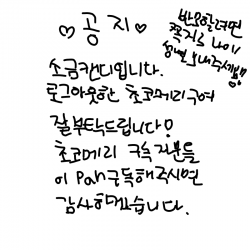 ♡공지♡
반모하려면
쪽지로 나이
성별 보내주세요
소금캔디입니다.
로그아웃한 초코메리구여
잘부탁드립니다!
초코메리 구독자분들
이 Pan구독해주시면
감사하겠습니다.